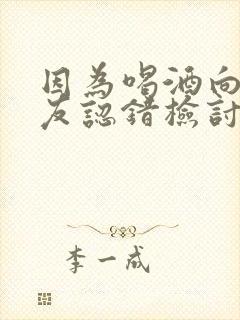 因為喝酒向
友認錯檢討
李一戒